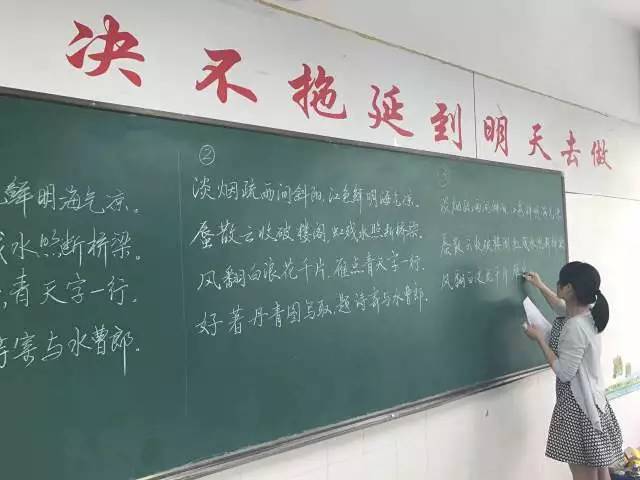 决不拖延到明天去做
鲜明海气凉。
水照断桥梁。
青天字一行。
寄与水曹郎。
②
淡烟疏雨间斜阳,江色鲜明海气凉。
蜃散云收破楼阁,虹残水照断桥梁。
风翻白浪花千片,雁点青天字一行。
好著丹青图写取,题诗寄与水曹郎。
③
淡烟疏雨间斜阳,江色鲜明海气凉
蜃散云收破楼阁,虹残水照断桥梁
风翻白浪花千片,雁